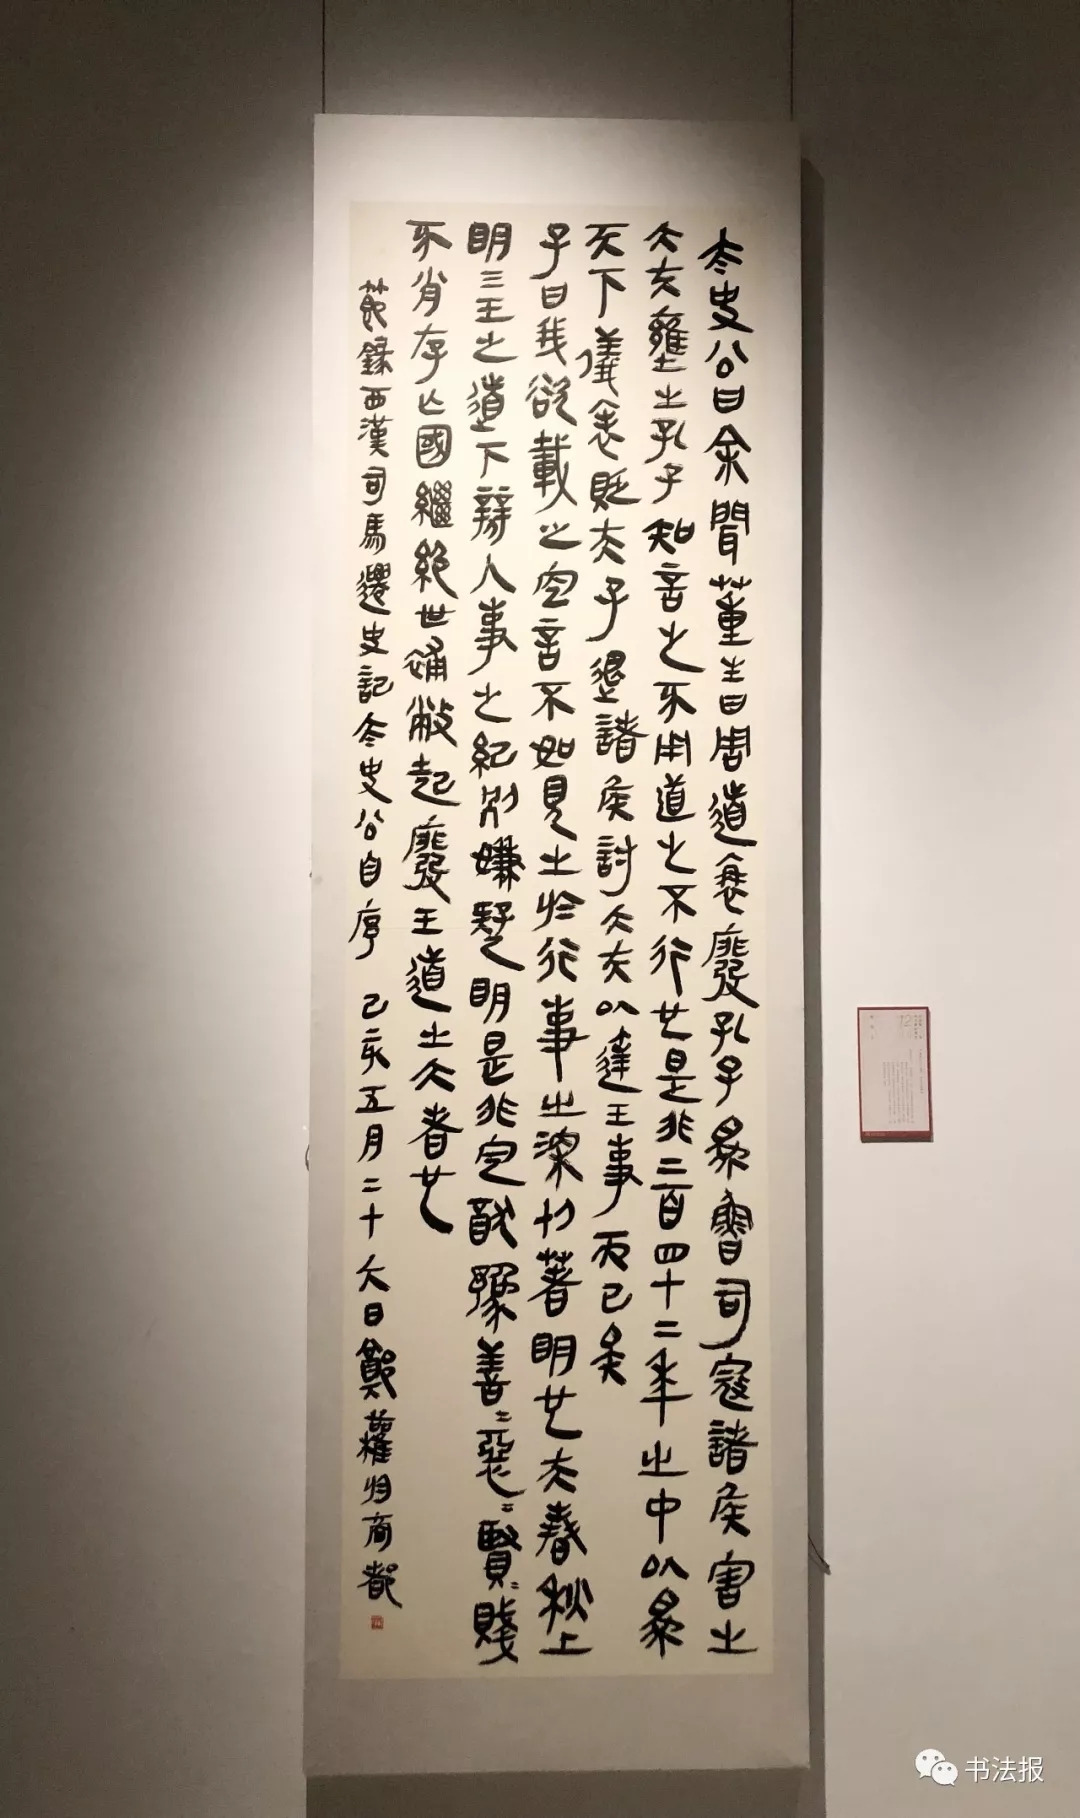 太史公曰余聞董生曰周道衰廢孔子為魯司寇諸侯害之
大夫壅之孔子知言之不用道之不行也是非二百四十二年之中以為
天下儀表貶天子退諸侯討大夫以達王事而已矣
子曰我欲載之空言不如見之於行事之深切著明也夫春秋上
明三王之道下辨人事之紀別嫌疑明是非定猶豫善=惡=賢=賤
不肖存亡國繼絕世補敝起廢王道之大者也
節錄西漢司馬遷史記太史公自序 己亥五月二十六日鄭權归商都
书法报